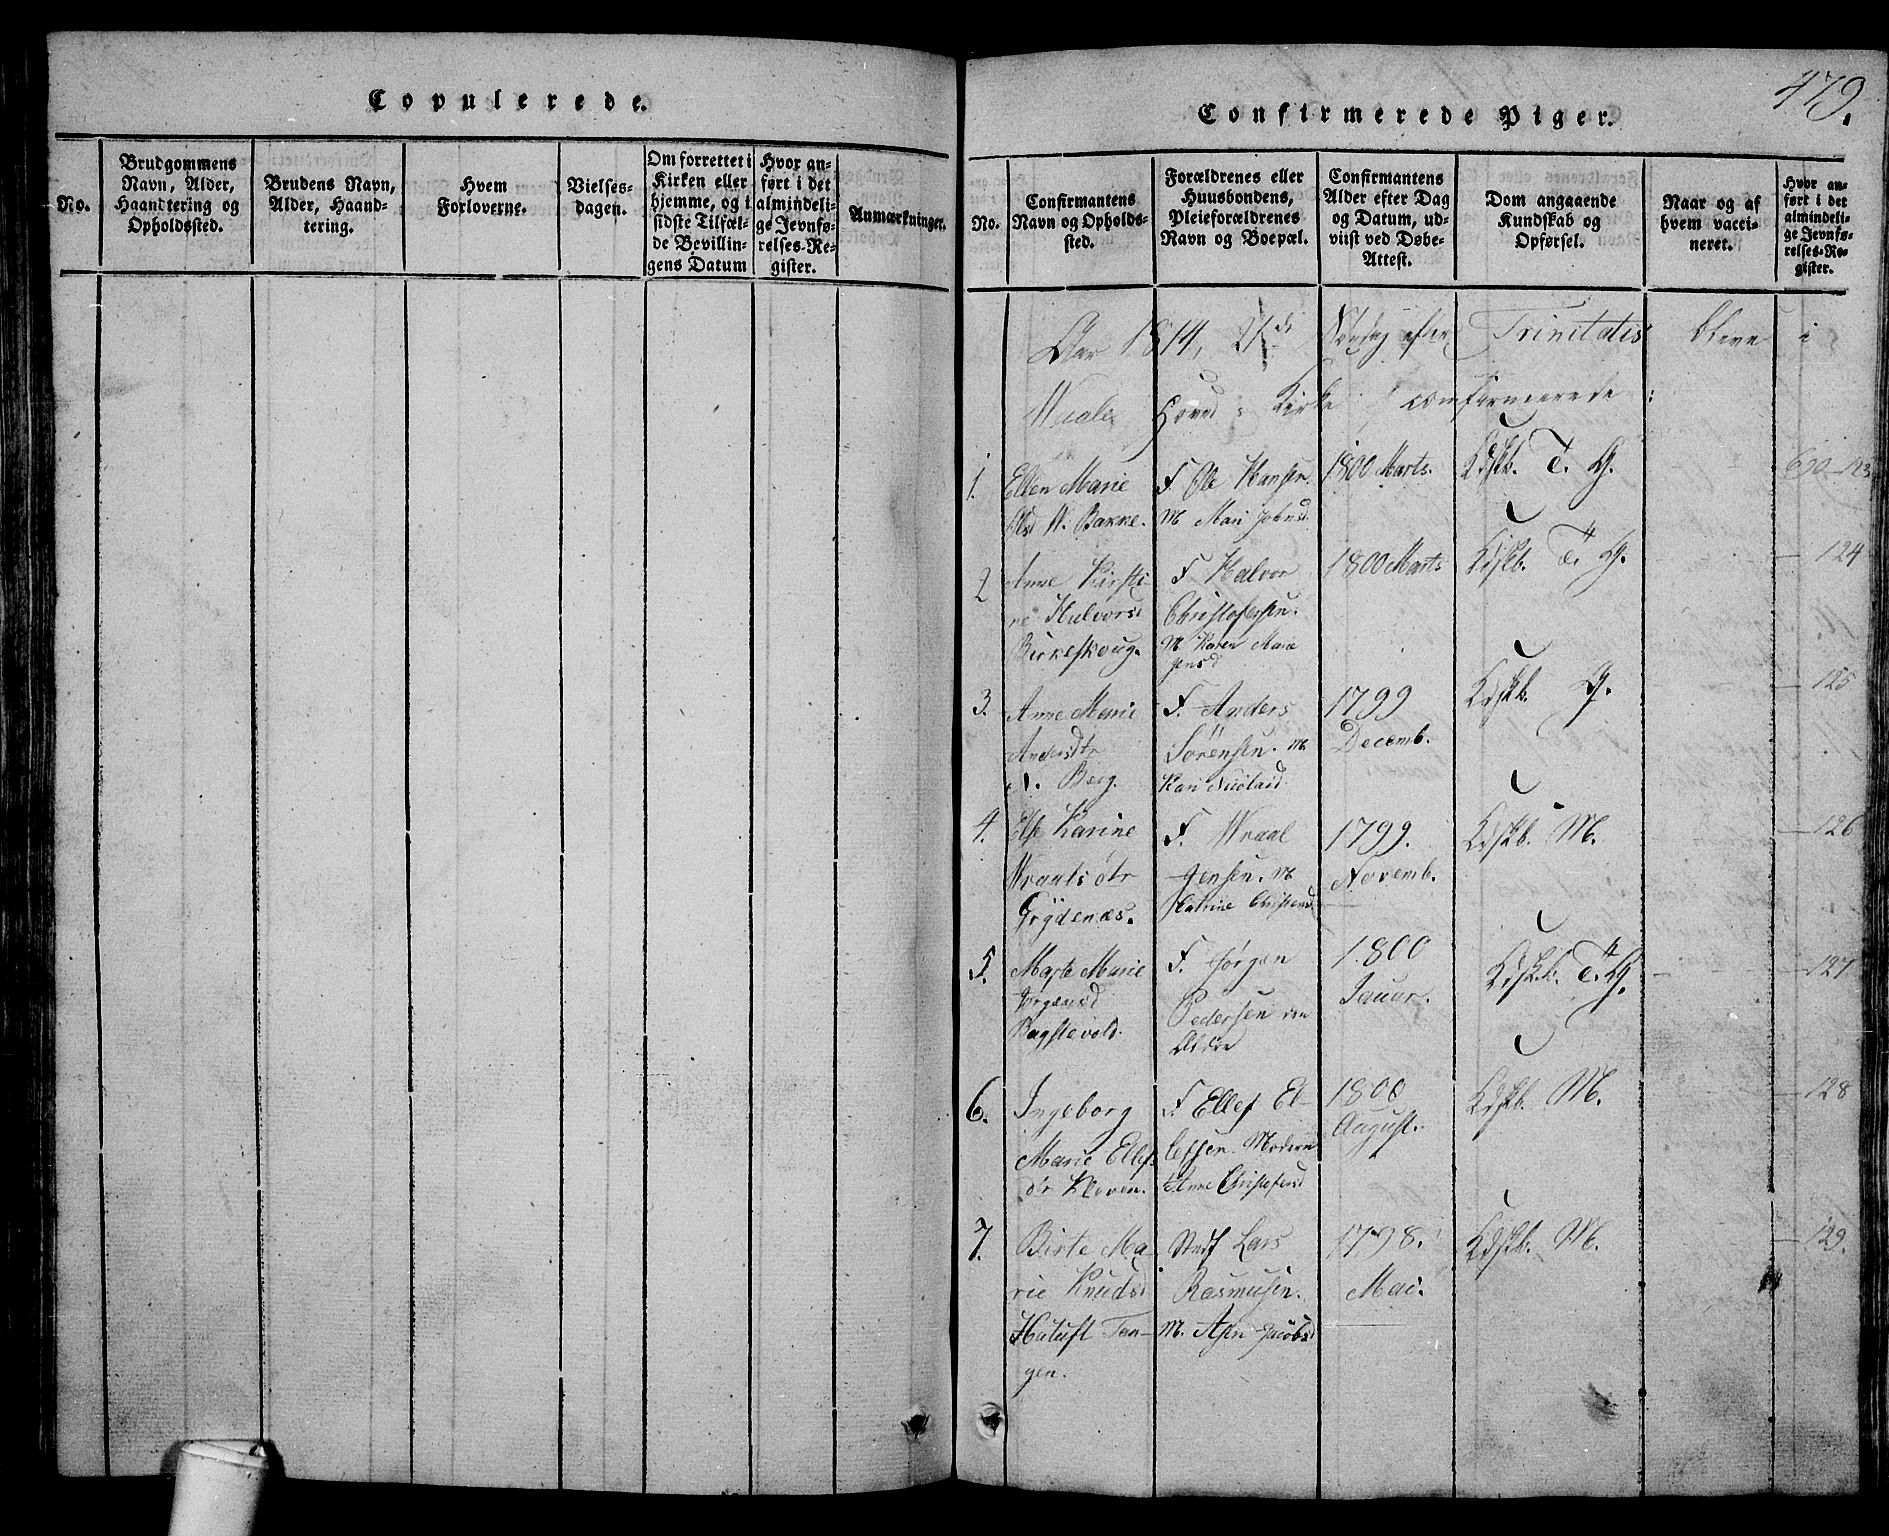 Copulerede.
No.
Brudgommens
Navn, Alder,
Haandtering og
Opholdssted.
Brudens Navn,
Alder, Haand-
tering.
Hvem
Forloverne.
Vielses-
dagen.
Om forrettet i
Kirken eller
hjemme, og i
sidste Tilfæl-
de Bevillin-
gens Datum
Hvor an-
ført i det
almindeli-
ge Jevnfø-
relses-Re-
gister.
Anmærkninger.
479.
Confirmerede Piger.
No.
Confirmantens
Navn og Opholds-
sted.
Forældrenes eller
Huusbondens,
Pleieforældrenes
Navn og Boepæl.
Confirmantens
Alder efter Dag
og Datum, ud-
viist ved Døbe-
Attest.
Dom angaaende
Kundskab og
Opførsel.
Naar og af
hvem vacci-
neret.
Hvor an-
ført i det
almindeli-
ge Jevnfø-
relses-Re-
gister.
Aar 1814, 21de Søndag efter Trinitatis bleve i
Waale Hoved-Kirke confirmerede:
1. Ellen Marie
Olsd N. Bakke.
F. Ole Hansen
M Mari Johnsd
1800 Marts.
Kdskb. T. G.
123
2 Anne Kirsti
ne Halvorsd
Birkeskoug.
F Halvor
Christofersen.
M Karen Marie
Jensd
1800 Marts
Kdskb. T. G.
124
3. Anne Marie
Andersdtr
N. Berg.
F. Anders
Sörensen. M
Kari Nicolaid
1799
Decemb.
Kdskb. G.
125
4. Else Karine
Wraals dtr
Grydenæs.
F. Wraal
Jensen. M
Catrine Christensd
1799.
Novemb.
Kdskb. M.
126
5. Marte Marie
Jørgensd
F. Jørgen
Pedersen den
1800
Januar.
Kdskb. T. G.
127
6. Ingeborg
Marie Ellefs
dtr Kleven.
F. Ellef El-
lefsen. Moderen
Anne Christofersd
1800
August.
Kdskb. M.
128
7. Birte Ma-
rie Knudsd
Tan-
gen.
Stedf Lars
Rasmusen.
M. Jacobsd
1798.
Mai.
Kdskb. M.
129.